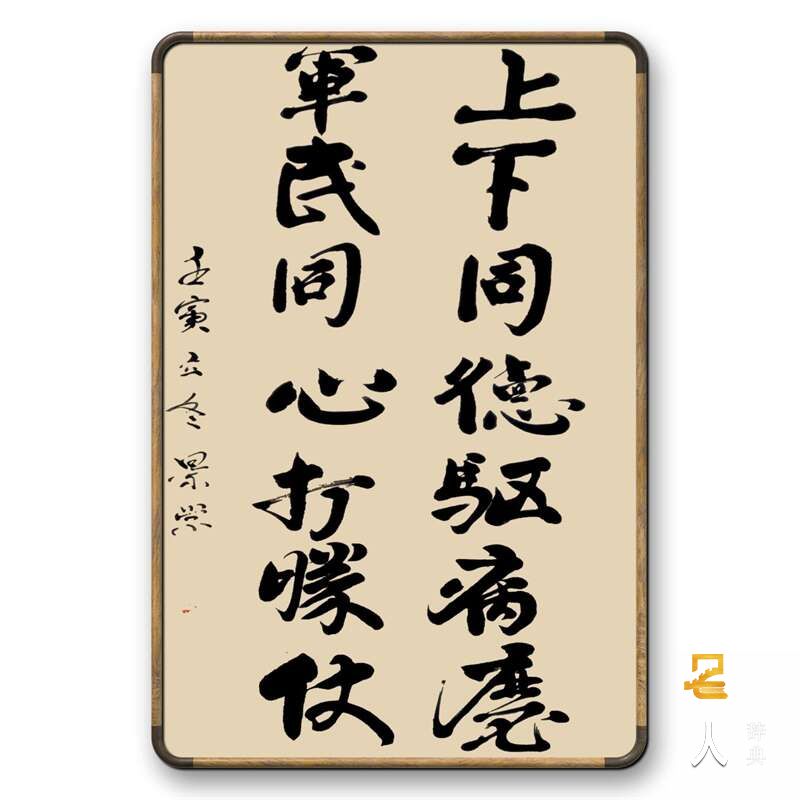 上下同德驱病魔
軍民同心打勝仗
壬寅立冬景
名人辞典